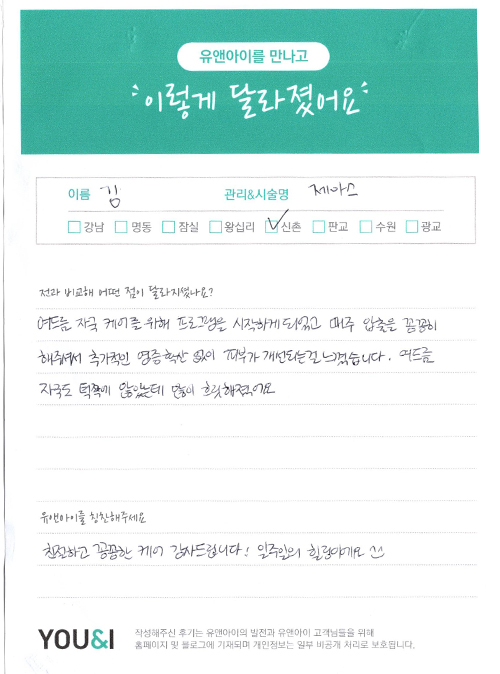 유앤아이를 만나고
이렇게 달라졌어요
이름 김 관리&시술명 제아스
강남 명동 잠실 왕십리 신촌 판교 수원 광교
전과 비교해 어떤 점이 달라지셨나요?
여드름 자국 케어를 위해 프로그램을 시작하게 되었고 매주 압출을 꼼꼼히
해주셔서 추가적인 염증확산 없이 피부가 개선되는걸 느꼈습니다. 여드름
자국도 턱쪽에 많았는데 많이 흐릿해졌어요
유앤아이를 칭찬해주세요
친절하고 꼼꼼한 케어 감사드립니다! 일주일의 힐링이에요 ^^
YOU&I
작성해주신 후기는 유앤아이의 발전과 유앤아이 고객님들을 위해
홈페이지 및 블로그에 기재되며 개인정보는 일부 비공개 처리로 보호됩니다.